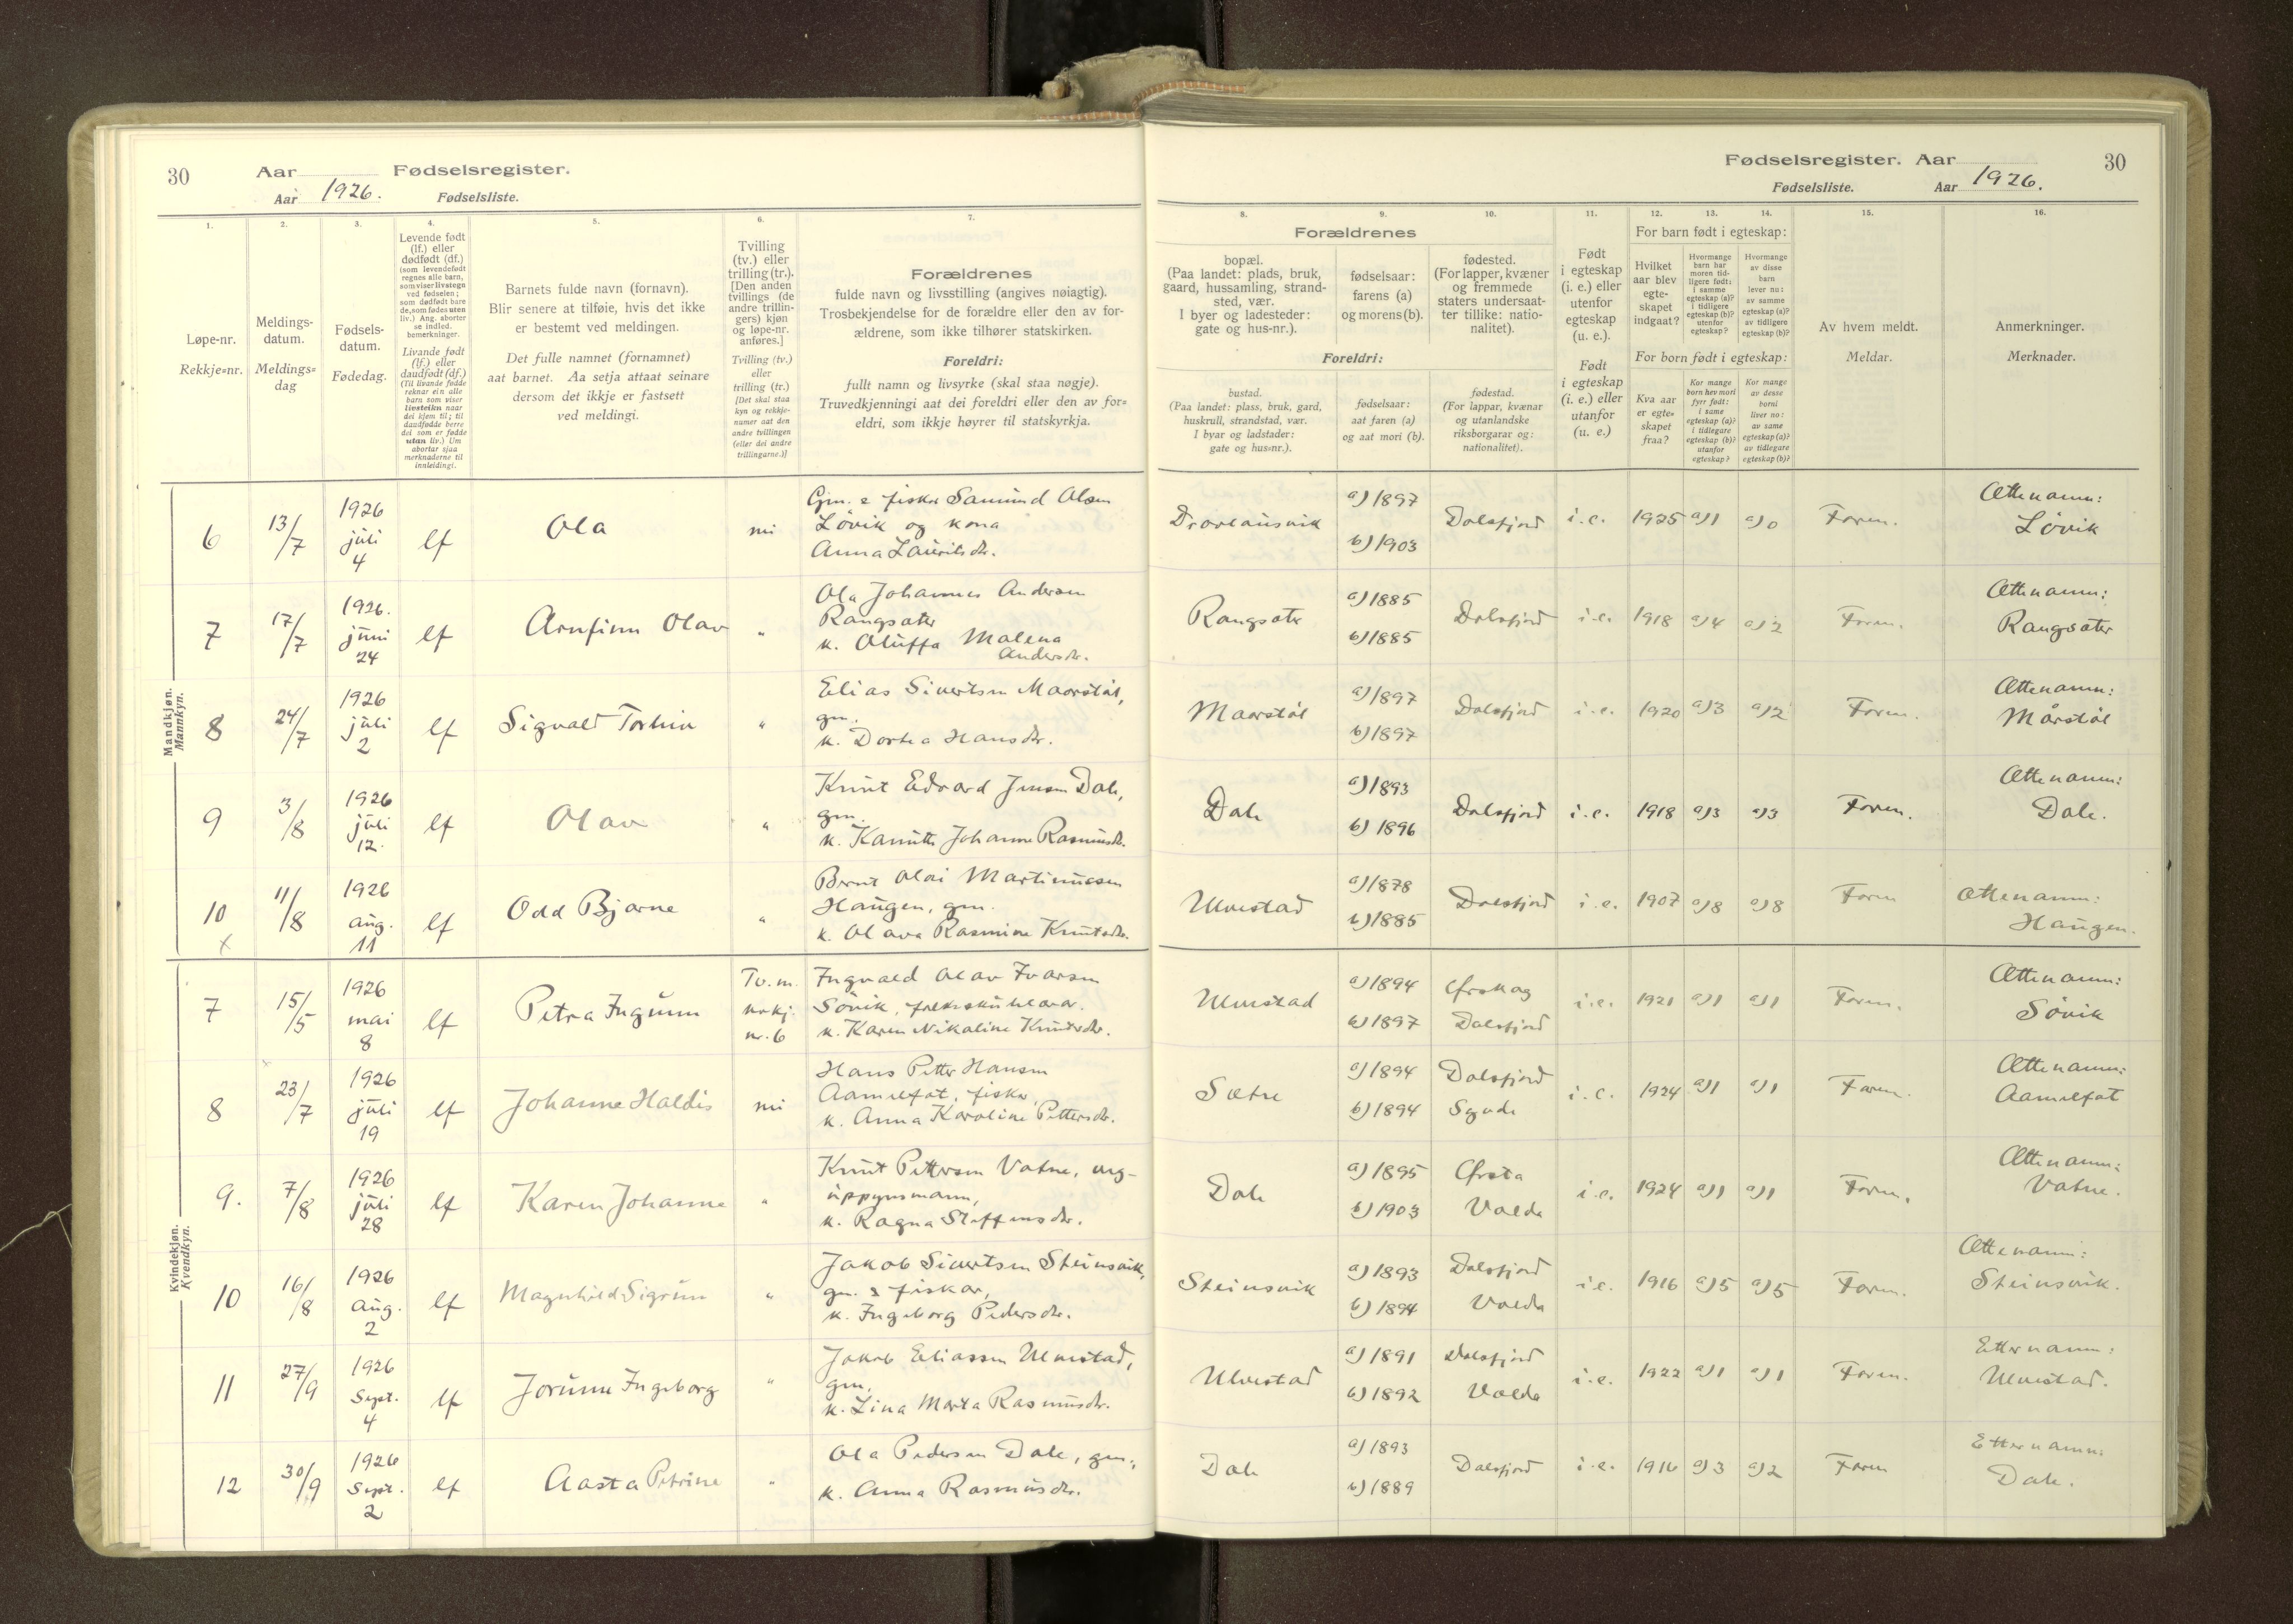 30 Aar Fødselsregister.
Aar 1926. Fødselsliste.
1. 2. 3. 4. 5. 6. 7.
Løpe-nr.
Rekkje=nr.
Meldings-
datum.
Meldings=
dag
Fødsels-
datum.
Fødedag.
Levende født
(lf.) eller
dødfødt (df.)
(som levendefødt
regnes alle barn,
som viser livstegn
ved fødselen;
som dødfødt bare
de, som fødes uten
liv.) Ang. aborter
se indled.
bemerkninger.
Livande født
(lf.) eller
daudfødt (df.)
(Til livande fødde
reknar ein alle
barn som viser
livsteikn naar
dei kjem til; til
daudfødde berre
dei som er fødde
utan liv.) Um
abortar sjaa
merknaderne til
innleidingi.
Barnets fulde navn (fornavn).
Blir senere at tilføie, hvis det ikke
er bestemt ved meldingen.
Det fulle namnet (fornamnet)
aat barnet. Aa setja attaat seinare
dersom det ikkje er fastsett
ved meldingi.
Tvilling
(tv.) eller
trilling (tr.).
[Den anden
tvillings (de
andre trillin-
gers) kjøn
og løpe-nr.
anføres.]
Tvilling (tv.)
eller
trilling (tr.)
[Det skal staa
kyn og rekkje-
numer aat den
andre tvillingen
(eller dei andre
trillingarne.)]
Forældrenes
fulde navn og livsstilling (angives nøiagtig).
Trosbekjendelse for de forældre eller den av for-
ældrene, som ikke tilhører statskirken.
Foreldri:
fullt namn og livsyrke (skal staa nøgje).
Truvedkjenningi aat dei foreldri eller den av for=
eldri, som ikkje høyrer til statskyrkja.
Mandkjøn.
Mannkyn.
6 13/7 1926 juli 4 lf Ola nei
Gm. & fiskar Samund Olsen
Lövik og kona
Anna Lauritsdr.
7 17/7 1926. juni 24 lf Arnfinn Olav "
Ola Johannes Andersen
Rangsæter
k. Oluffa Malena
Andersdr.
8 24/7 1926 juli 2 lf Sigvald Torhin "
Elias Sivertsen Maorstøl,
gm.
k. Dortea Hansdr.
9 3/8 1926 juli 12. lf Olav "
Knut Edvard Jensen Dale,
gm.
k. Kanutte Johanne Rasmusdr.
10 11/8 1926 aug. 11 lf Odd Bjarne "
×
Bernt Olai Martinussen
Haugen, gm.
k. Olava Rasmine Knutsdr.
Kvindekjøn.
Kvendkyn.
7 15/5 1926 mai 8 lf Petra Ingunn Tv. m. rekkj. nr. 6
Ingvald Olav Ivarsen
Søvik,
k. Karen Nikoline Knutsdr.
8 23/7 1926 juli 19 lf Johanne Haldis nei
Hans Petter Hansen
Aamelfot, fiskar,
k. Anna Karoline Pettersdr.
9. 7/8 1926 juli 28 lf Karen Johanne "
Knut Pettersen Vatne, ung-
uppynsmann,
k. Ragna Steffensdr.
10 16/8 1926 aug. 2 lf Magnhild Sigrun "
Jakob Sivertsen Steinsvik,
gm. & fiskar,
k. Ingeborg Pedersdr.
11 27/9 1926 Sept. 4 lf Jorunn Ingeborg "
Jakob Eliassen Ulvestad,
gm.
k. Lina Marta Rasmusdr.
12 30/9 1926 Sept. 2 lf Aasta Petrine "
Ola Pedersen Dale, gm.,
k. Anna Rasmusdr.
Fødselsregister. Aar 30
Fødselsliste. Aar 1926.
8. 9. 10. 11. 12. 13. 14. 15. 16.
Forældrenes
bopæl.
(Paa landet: plads, bruk,
gaard, hussamling, strand-
sted, vær.
I byer og ladesteder:
gate og hus-nr.).
fødselsaar:
farens (a)
og morens (b).
fødested.
(For lapper, kvæner
og fremmede
staters undersaat-
ter tillike: natio-
nalitet).
Foreldri:
bustad.
(Paa landet: plass, bruk, gard,
huskrull, strandstad, vær.
I byar og ladstader:
gate og hus=nr.).
fødselsaar:
aat faren (a)
og aat mori (b).
fødestad.
(For lappar, kvænar
og utanlandske
riksborgarar og:
nationalitet).
Født
i egteskap
(i. e.) eller
utenfor
egteskap
(u. e.).
Født
i egteskap
(i. e.) eller
utanfor
(u. e.)
For barn født i egteskap:
Hvilket
aar blev
egte-
skapet
indgaat?
Hvormange
barn har
moren tid-
ligere født:
i samme
egteskap (a)?
i tidligere
egteskap (b)?
utenfor
egteskap?
Hvormange
av disse
barn
lever nu:
av samme
egteskap (a)?
av tidligere
egteskap (b)?
For born født i egteskap:
Kva aar
er egte=
skapet
fraa?
Kor mange
born hev mori
fyrr født:
i same
egteskap (a)?
i tidlegare
egteskap (b)?
utanfor
egteskap?
Kor mange
av desse
borni
liver no:
av same
egteskap (a)?
av tidlegare
egteskap (b)?
Av hvem meldt.
Meldar.
Anmerkninger.
Merknader.
a) 1897 b) 1903 Dalsfjord i. e. 1925 a) 1 a) 0 Foren. Ættenamn: Lövik
Rangsæter a) 1885 b) 1885 Dalsfjord i. e. 1918 a) 4 a) 2 Foren. Ættenamn: Rangsæter
Maorstøl a) 1897 b) 1897 Dalsfjord i. e. 1920 a) 3 a) 2 Foren. Ættenamn: Mårstøl
Dale a) 1893 b) 1896 Dalsfjord i. e. 1918 a) 3 a) 3 Foren. Ættenamn: Dale.
Ulvestad a) 1878 b) 1885 Dalsfjord i. e. 1907 a) 8 a) 8 Foren Ættenamn: Haugen.
Ulvestad a) 1894 b) 1897 Ørskog Dalsfjord i. e. 1921 a) 1 a) 1 Foren. Ættenamn: Søvik
Sætre a) 1894 b) 1894 Dalsfjord Syvde i. e. 1924 a) 1 a) 1 Foren. Ættenamn: Aamelfot
Dale a) 1895 b) 1903 Ørsta Volda i. e. 1924 a) 1 a) 1 Foren. Ættenamn: Vatne.
Steinsvik a) 1893 b) 1894 Dalsfjord Volda i. e. 1916 a) 5 a) 5 Foren. Ættenamn: Steinsvik.
Ulvestad a) 1891 b) 1892 Dalsfjord Volda i. e. 1922 a) 1 a) 1 Foren. Etternamn: Ulvestad.
Dale a) 1893 b) 1889 Dalsfjord i. e. 1916 a) 3 a) 2 Foren Etternamn: Dale.